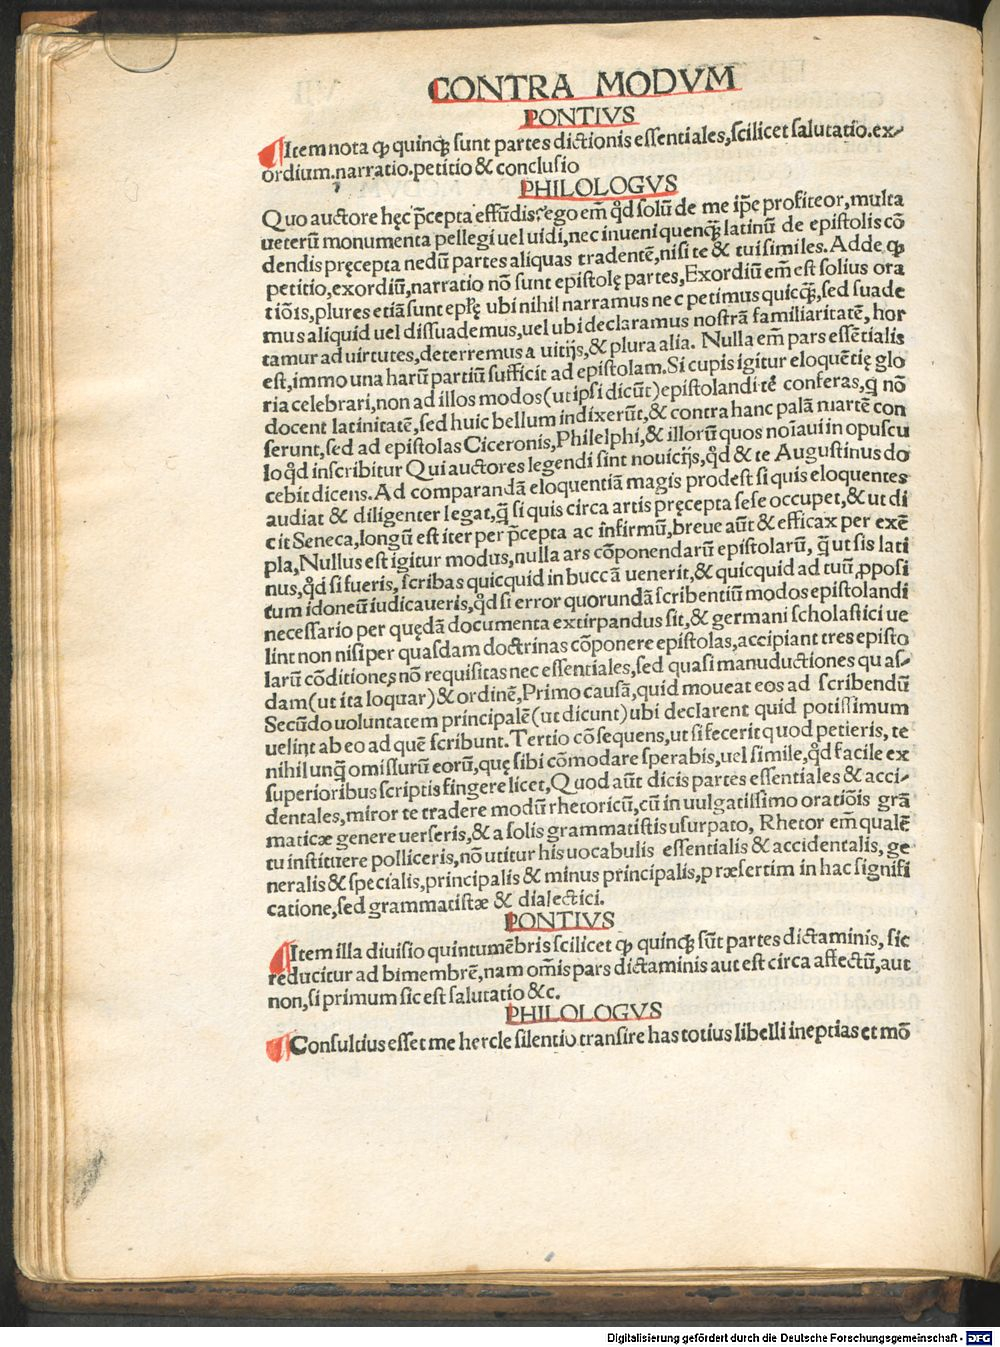 CONTRA MODVM
PONTIVS
Item nota ꝙ quinqꝫ sunt partes dictionis essentiales, scilicet salutatio.ex-
ordium.narratio.petitio & conclusio
PHILOLOGVS
Quo auctore hęc p̄cepta effūdis? ego em̄ qd̄ solū de me ip̄e profiteor, multa
ueterū monumenta pellegi uel uidi, nec inueni quenqꝫ latinū de epistolis cō
dendis pręcepta nedū partes aliquas tradentē, nisi te & tui similes. Adde ꝙ
petitio, exordiū, narratio nō sunt epistolę partes, Exordiū em̄ est solius ora
tiōis, plures etiā sunt epl̄ę ubi nihil narramus nec petimus quicqꝫ, sed suade
mus aliquid uel dissuademus, uel ubi declaramus nostrā familiaritatē, hor
tamur ad uirtutes, deterremus a uitijs, & plura alia. Nulla em̄ pars essētialis
est, immo una harū partiū sufficit ad epistolam. Si cupis igitur eloquētię glo
ria celebrari, non ad illos modos (ut ipsi dicūt) epistolandi te conferas, q̄ nō
docent latinitatē, sed huic bellum indixerūt, & contra hanc palā martē con
serunt, sed ad epistolas Ciceronis, Philelphi, & illorū quos noīaui in opuscu
lo qd̄ inscribitur Qui auctores legendi sint nouicijs, qd̄ & te Augustinus do
cebit dicens. Ad comparandā eloquentiā magis prodest si quis eloquentes
audiat & diligenter legat, q̄ si quis circa artis pręcepta sese occupet, & ut di
cit Seneca, longū est iter per p̄cepta ac infirmū, breue aūt & efficax per exē
pla, Nullus est igitur modus, nulla ars cōponendarū epistolarū, q̄ ut sis lati
nus, qd̄ si fueris, scribas quicquid in buccā uenerit, & quicquid ad tuū ꝓposi
tum idoneū iudicaueris, qd̄ si error quorundā scribentiū modos epistolandi
necessario per quędā documenta extirpandus sit, & germani scholastici ue
lint non nisi per quasdam doctrinas cōponere epistolas, accipiant tres episto
larū cōditiones nō requisitas nec essentiales, sed quasi manuductiones quas-
dam (ut ita loquar) & ordinē, Primo causā, quid moueat eos ad scribendū
Secūdo uoluntatem principalē (ut dicunt) ubi declarent quid potissimum
uelint ab eo ad quē scribunt. Tertio cōsequens, ut si fecerit quod petieris, te
nihil unq̄ omissurū eorū, quę sibi cōmodare sperabis, uel simile, qd̄ facile ex
superioribus scriptis fingere licet, Quod aūt dicis partes essentiales & acci-
dentales, miror te tradere modū rhetoricū, cū in uulgatissimo oratiōis grā
maticæ genere uerseris, & a solis grammatistis usurpato, Rhetor em̄ qualē
tu instituere polliceris, nō utitur his uocabulis essentialis & accidentalis, ge
neralis & specialis, principalis & minus principalis, præsertim in hac signifi
catione, sed grammatistæ & dialectici.
PONTIVS
Item illa diuisio quintumēbris scilicet ꝙ quinqꝫ sūt partes dictaminis, sic
reducitur ad bimembrē, nam om̄is pars dictaminis aut est circa affectū, aut
non, si primum sic est salutatio &c.
PHILOLOGVS
Consultius esset me hercle silentio transire has totius libelli ineptias et mō
Digitalisierung gefördert durch die Deutsche Forschungsgemeinschaft - DFG